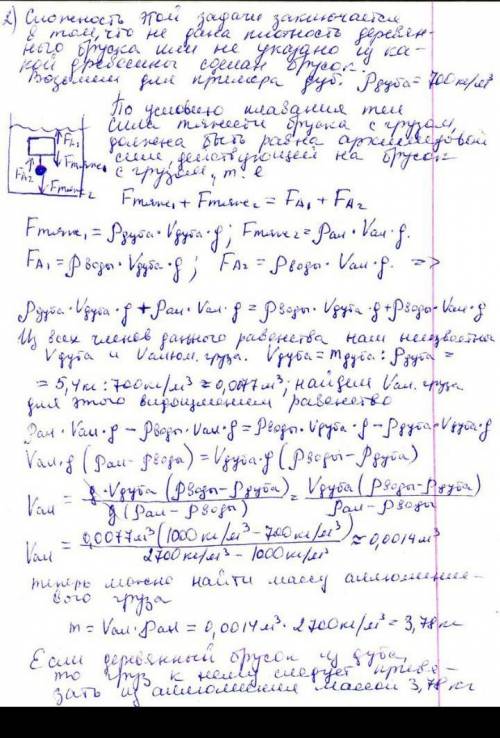 2) Сложность этой задачи заключается
в том, что не дана плотность деревян-
ного бруска или не указано из ка-
кой древесины сделан брусок.
Возьмем для примера дуб. ρдуба = 700 кг/м³
По условию плавания тел
сила тяжести бруска с грузом,
должна быть равна архимедовой
силе, действующей на брусок
с грузом, т. е
FA₁
Fтяж₁
FA₂
Fтяж₂
Fтяж₁ + Fтяж₂ = FA₁ + FA₂
Fтяж₁ = ρдуба·Vдуба·g; Fтяж₂ = ρал·Vал·g.
FA₁ = ρводы·Vдуба·g; FA₂ = ρводы·Vал·g. =>
ρдуба·Vдуба·g + ρал·Vал·g = ρводы·Vдуба·g + ρводы·Vал·g
Из всех членов данного равенства нам неизвестны
Vдуба и Vалюм. груза. Vдуба = mдуба : ρдуба =
= 5,4 кг : 700 кг/м³ ≈ 0,0077 м³; найдем Vал. груза
для этого видоизменяем равенство
ρал·Vал·g − ρводы·Vал·g = ρводы·Vдуба·g − ρдуба·Vдуба·g
Vал·g (ρал − ρводы) = Vдуба·g (ρводы − ρдуба)
Vал = g·Vдуба (ρводы − ρдуба) / g (ρал − ρводы) = Vдуба (ρводы − ρдуба) / ρал − ρводы
Vал = 0,0077 м³ (1000 кг/м³ − 700 кг/м³) / 2700 кг/м³ − 1000 кг/м³ ≈ 0,0014 м³
теперь можно найти массу аллюминие-
вого груза
m = Vал·ρал = 0,0014 м³ · 2700 кг/м³ = 3,78 кг
Если деревянный брусок из дуба,
то груз к нему следует привя-
зать из аллюминия массой 3,78 кг